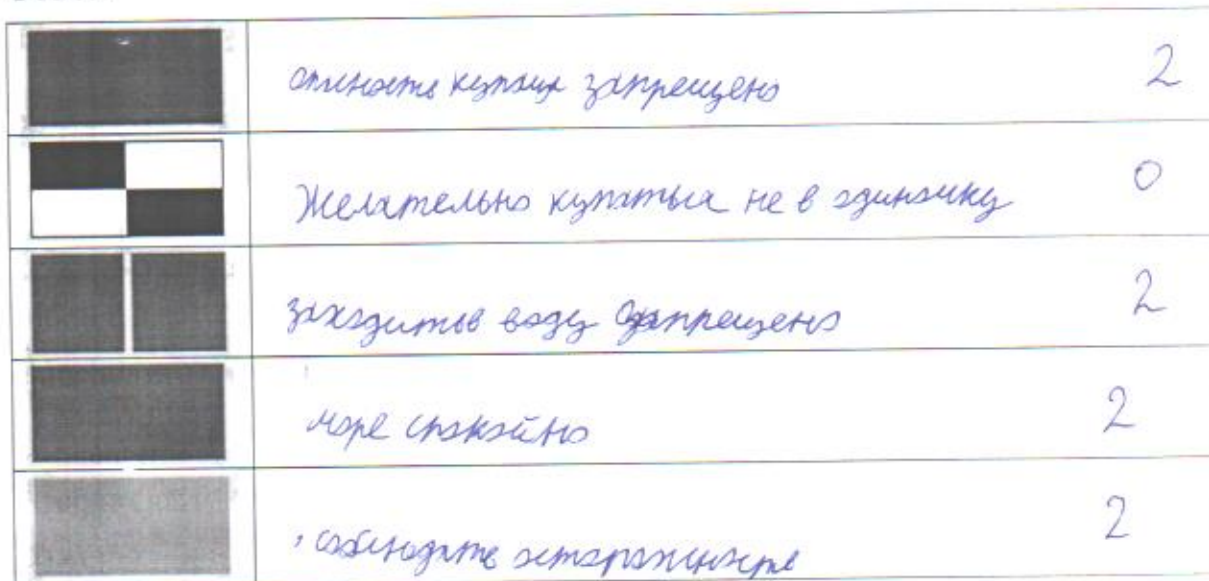 купаця запрещено 2
Желательно купаться не в одиночку 0
заходитьв воду запрещено 2
море спокойно 2
соблюдать осторожность 2